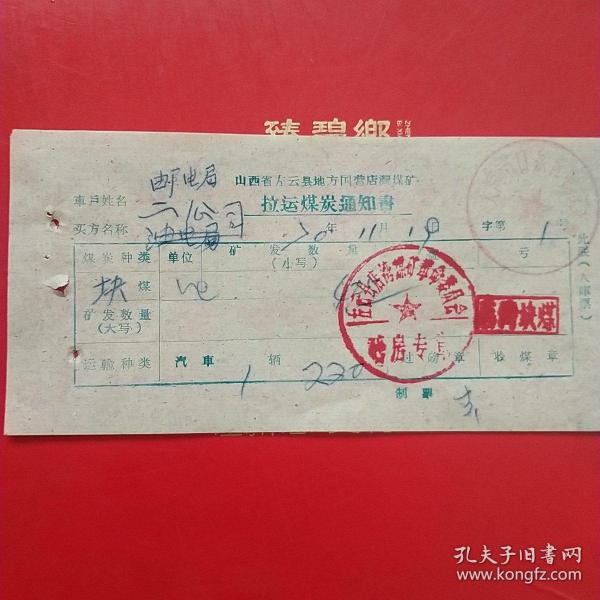 臻碧鄉
邮电局
山西省左云县地方国营店湾煤矿
車戶姓名
拉运煤炭通知書
二公司
买方名称 油电局 70年11月19日 字第1号
煤炭种类 单位 矿发数量(小写) 亏
块煤 吨
矿发数量(大写)
左云县店湾煤矿革命委员会
磅房专章
块煤
运输种类 汽車 1 辆 220 过磅章 收煤章
制單
孔夫子旧书网
www.kongfz.com